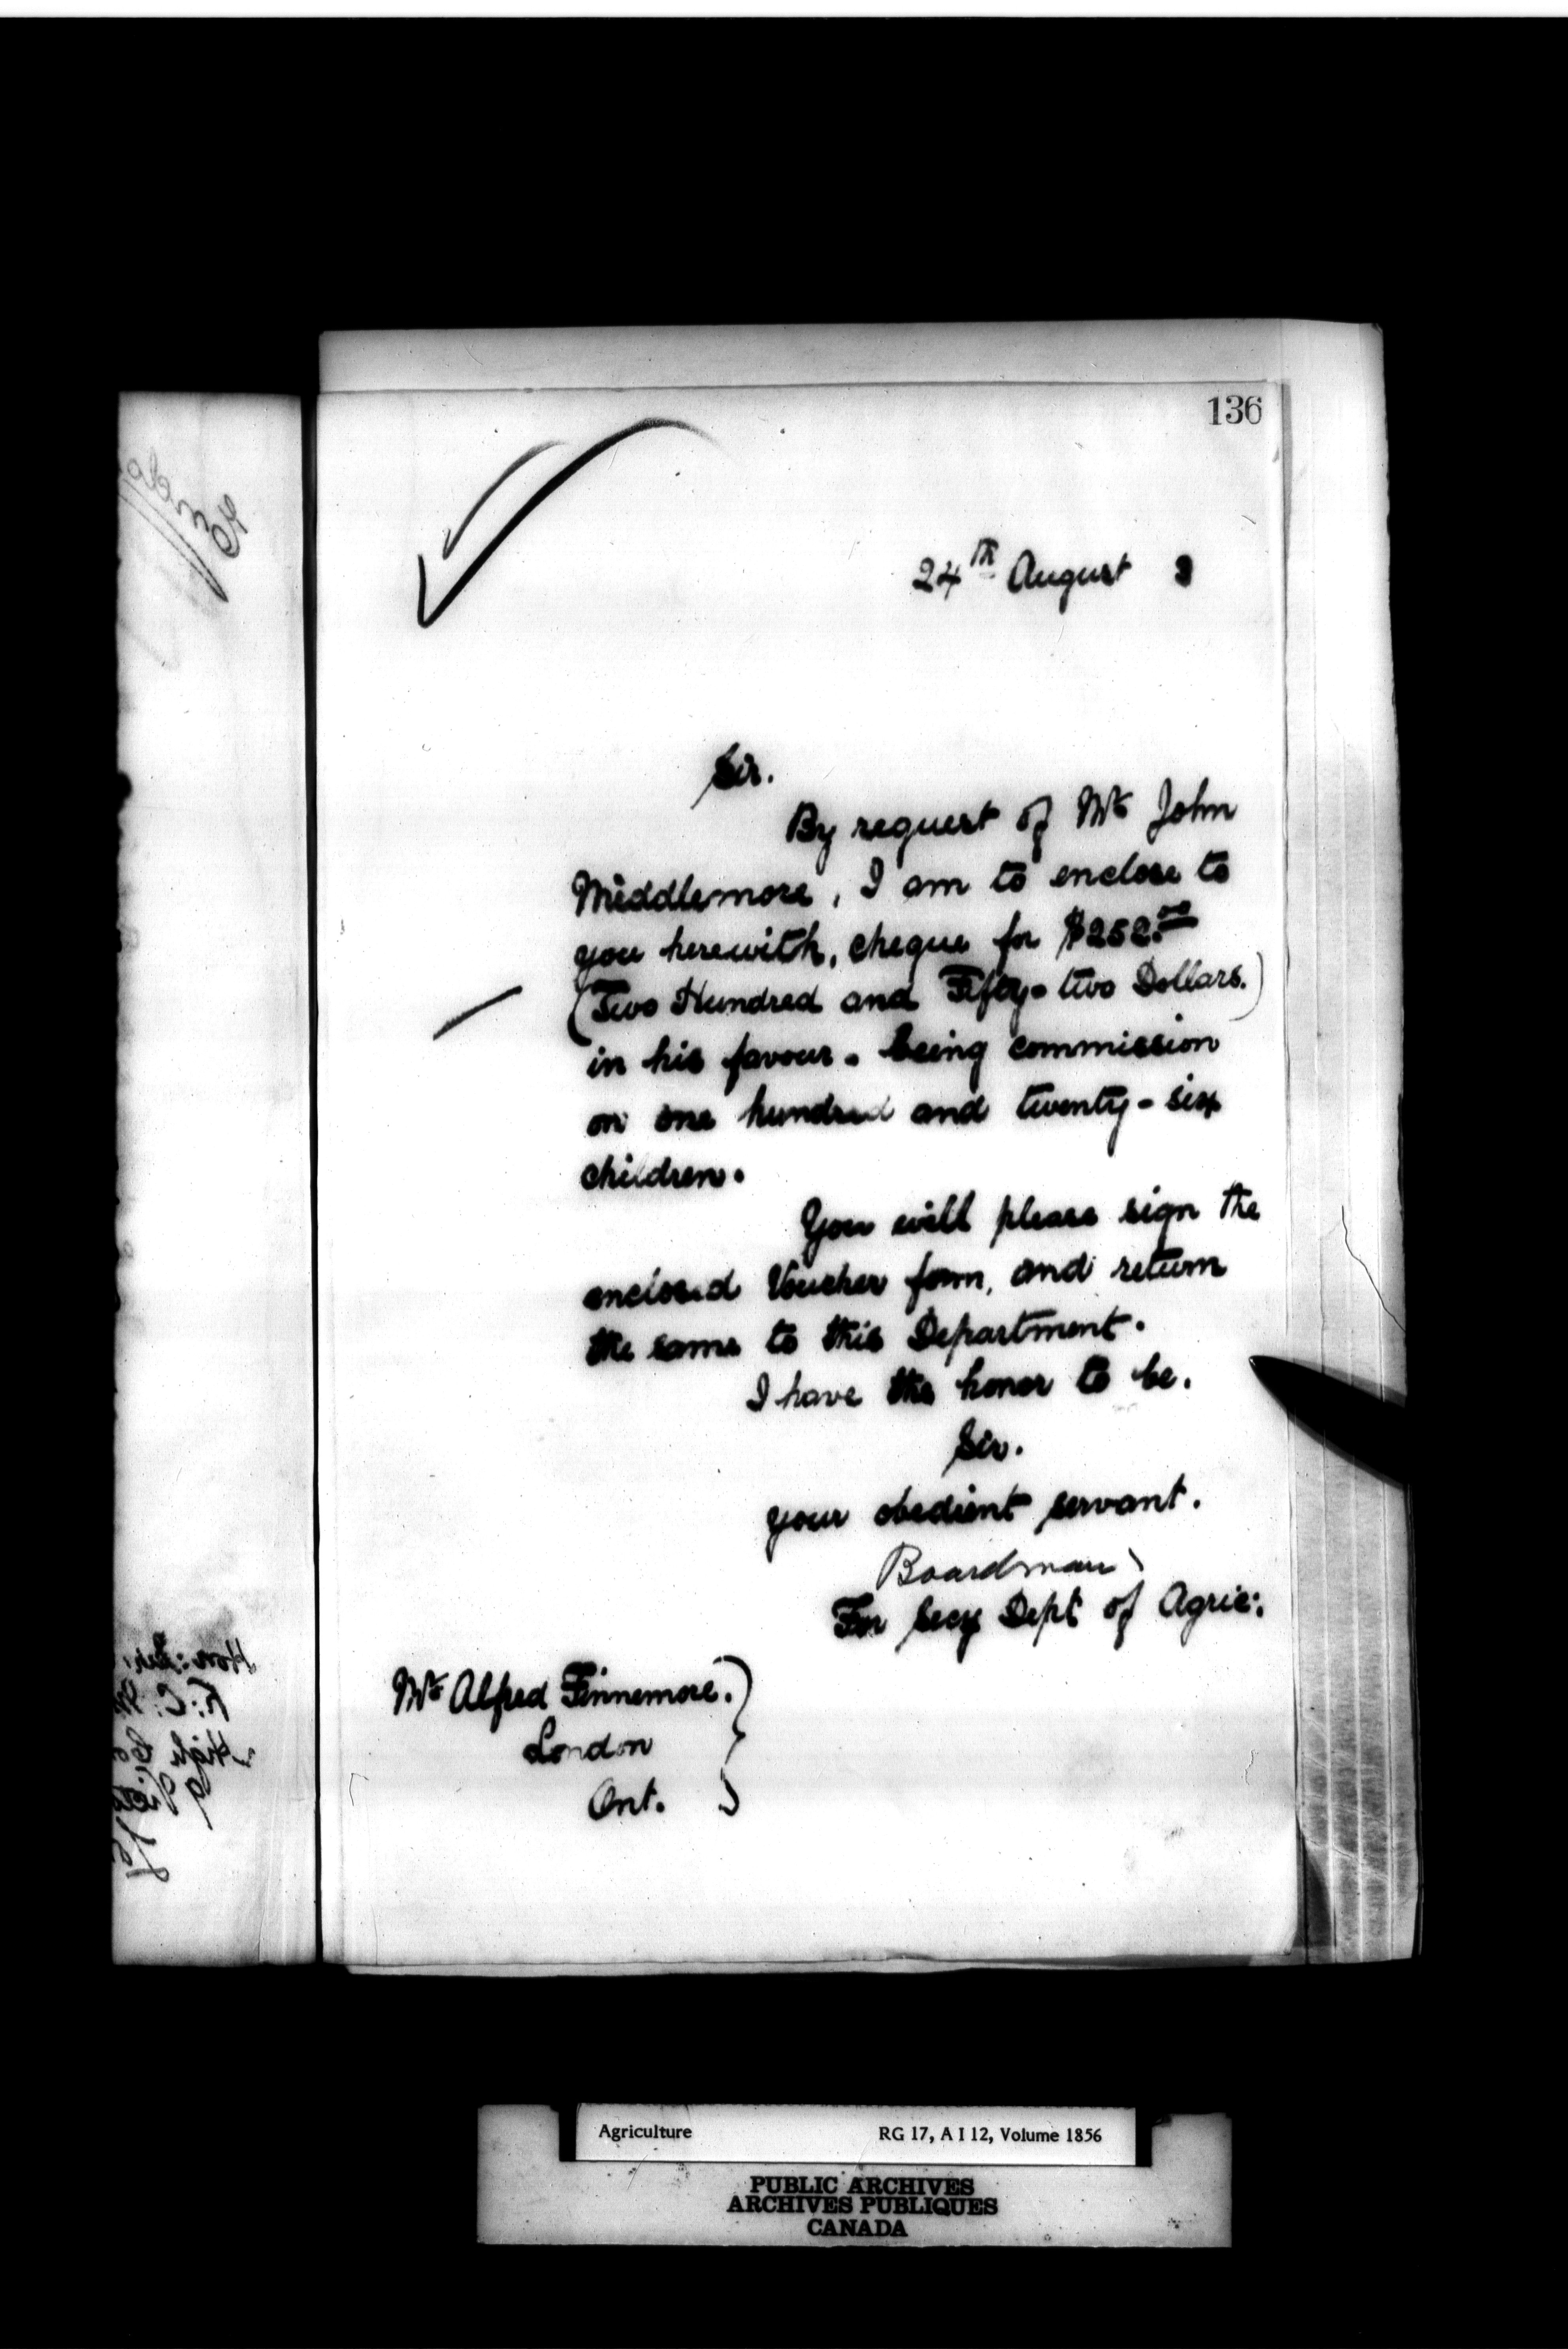 136
24th August 3
Sir.
By request of Mr John
Middlemore, I am to enclose to
you herewith, cheque for $252.00
(Two Hundred and Fifty-two Dollars.)
in his favour - being commission
on one hundred and twenty-six
children.
You will please sign the
enclosed Voucher form, and return
the same to this Department.
I have the honor to be.
Sir.
your obedient servant.
Boardman
For Secy Dept of Agric:
Mr Alfred Finnemore.
London
Ont.
Agriculture RG 17, A I 12, Volume 1856
PUBLIC ARCHIVES
ARCHIVES PUBLIQUES
CANADA